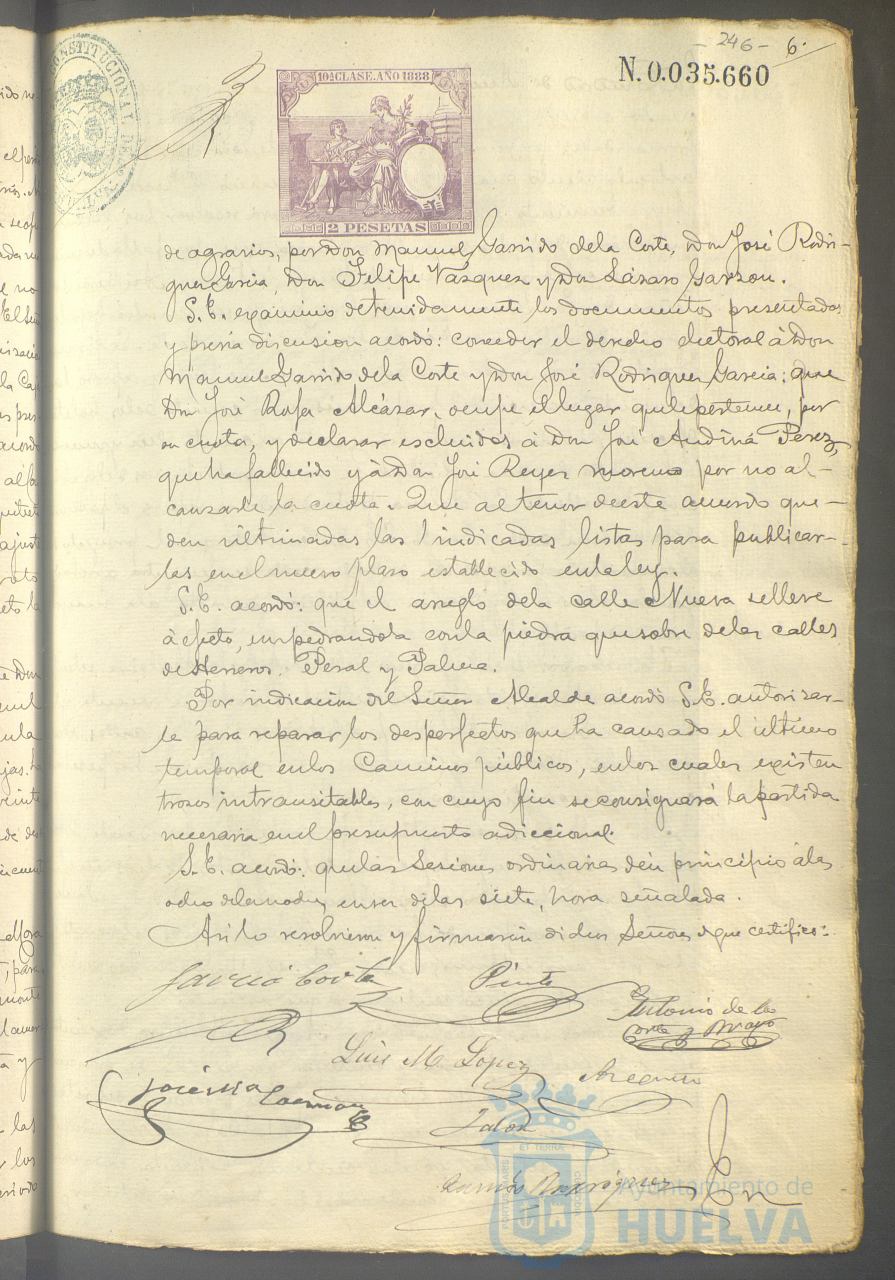 - 246 - 6.
N. 0.035.660
CONSTITUCIONAL DE
10ª CLASE. AÑO 1888
2 PESETAS
de agravios, por Don Manuel Garrido dela Corte, Don José Rodri-
guez Garcia, Don Felipe Vazquez y Don Lázaro Garzon.
S. E. examinó detenidamente los documentos presentados
y prévia discusion acordó: conceder el derecho electoral à Don
Manuel Garrido dela Corte y Don José Rodriguez Garcia; que
Don José Rofa Alcázar, ocupe el lugar que le pertenece, por
su cuota, y declarar escluidos à Don José Andiná Perez,
que ha fallecido y à Don José Reyes Moreno por no al-
canzarle la cuota. Que al tenor de este acuerdo que-
den ultimadas las indicadas listas para publicar-
las en el nuevo plazo establecido en la ley.
S. E. acordó: que el arreglo dela calle Nueva se lleve
à efecto, empedrandola con la piedra que sobre de las calles
de Herreros, Peral y Palma.
Por indicacion del Señor Alcalde acordó S. E. autorizar-
le para reparar los desperfectos que ha causado el último
temporal en los Caminos públicos, en los cuales existen
trozos intransitables, con cuyo fin se consignará la partida
necesaria en el presupuesto adiccional.
S. E. acordó: que las Sesiones ordinarias dén principio à las
ocho dela noche, en vez de las siete, hora señalada.
Asi lo resolvieron y firmarán dichos Señores de que certifico:
Garrido Corte Pinto
Antonio de la
Corte y Bravo
Luis M. Lopez
Garcia
Ramos Rodriguez
Ayuntamiento de
HUELVA